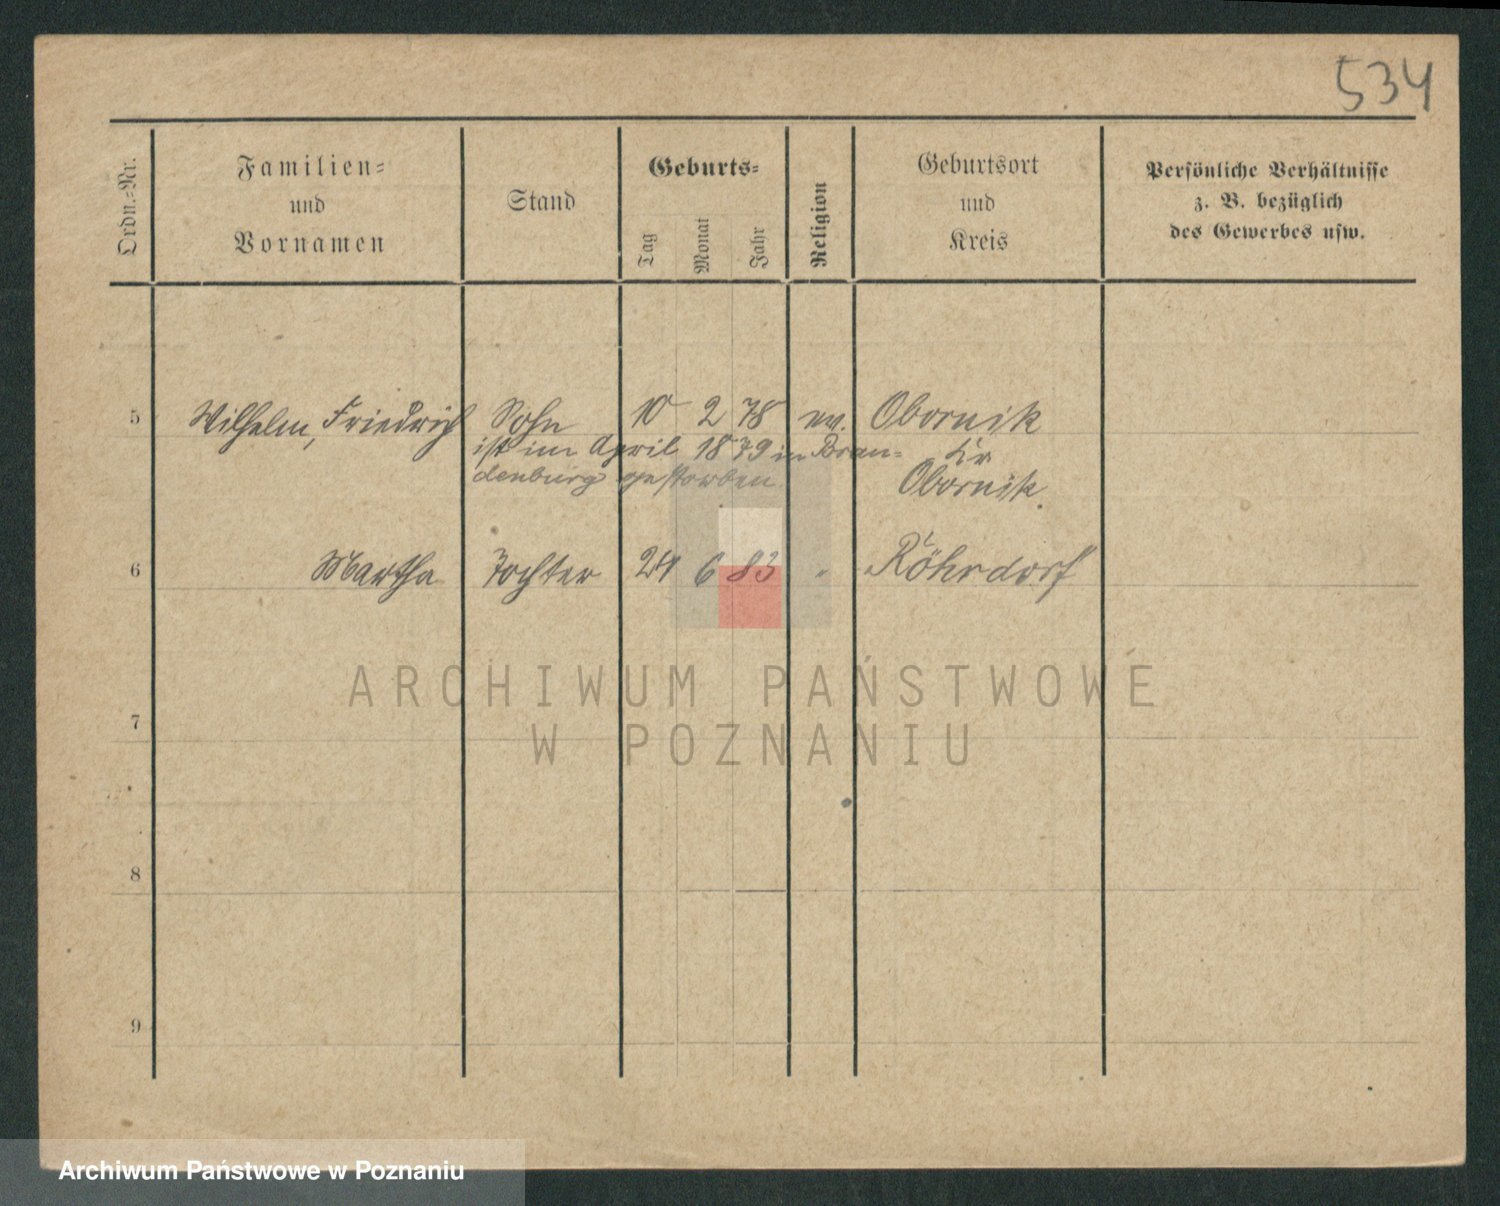 534
Ordn.-Nr.
Familien-
und
Vornamen
Stand
Geburts-
Tag
Monat
Jahr
Religion
Geburtsort
und
Kreis
Persönliche Verhältnisse
z. B. bezüglich
des Gewerbes usw.
5 Wilhelm, Friedrich Sohn 10 2 78 ev. Obornik
ist im April 1879 in Bran- Kr
denburg gestorben. Obornik.
6 Martha Tochter 24 6 83 " Röhrdorf
ARCHIWUM PAŃSTWOWE
7
W POZNANIU
8
9
Archiwum Państwowe w Poznaniu